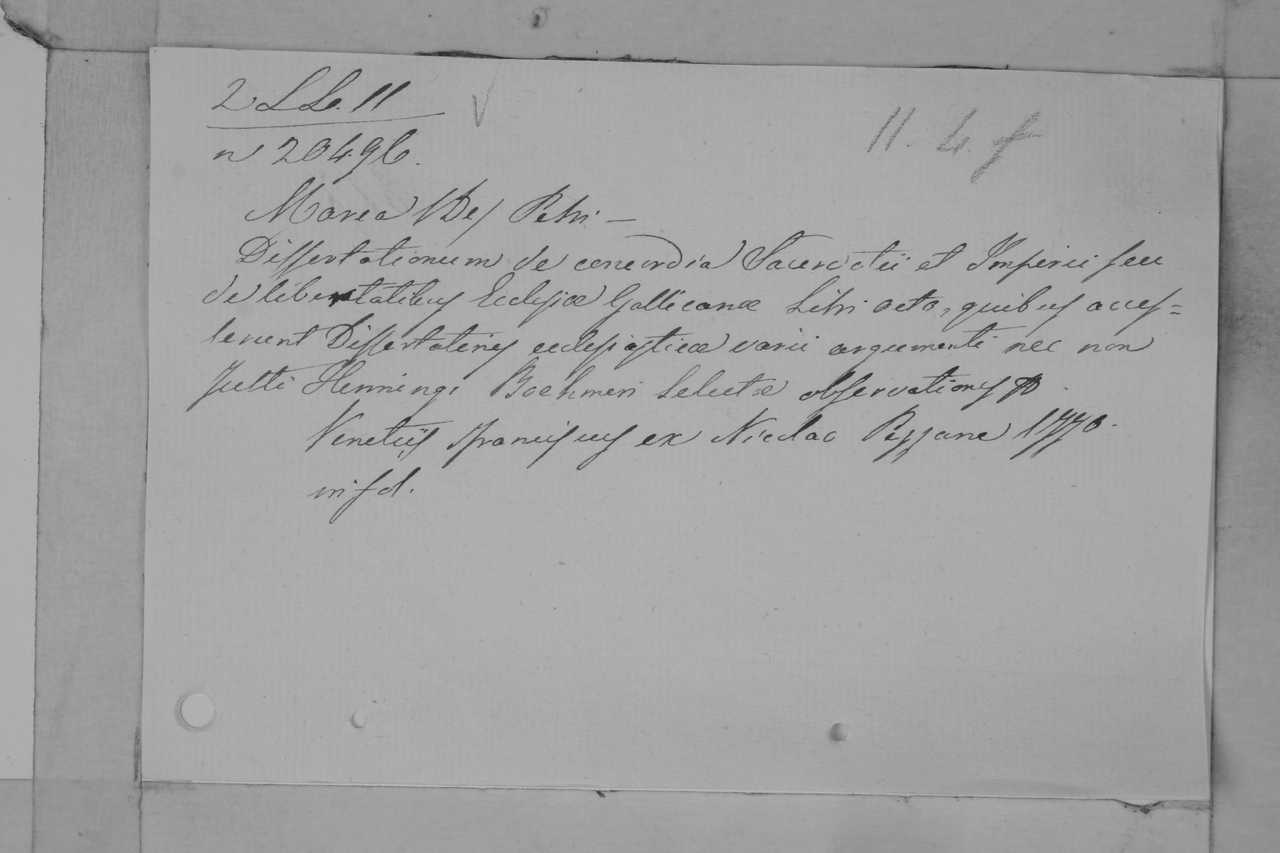 2 LL. 11
11. 4. f
n 20496.
Marca /De/ Petri —
Dissertationum de concordia Sacerdotii et Imperii seu
de libertatibus Ecclesiæ Gallicanæ Libri octo, quibus acces=
serunt Dissertationes ecclesiasticæ varii argumenti nec non
Justi Henningi Boehmeri selectæ observationes
Venetiis ex Nicolao Pezzana 1770.
in fol.